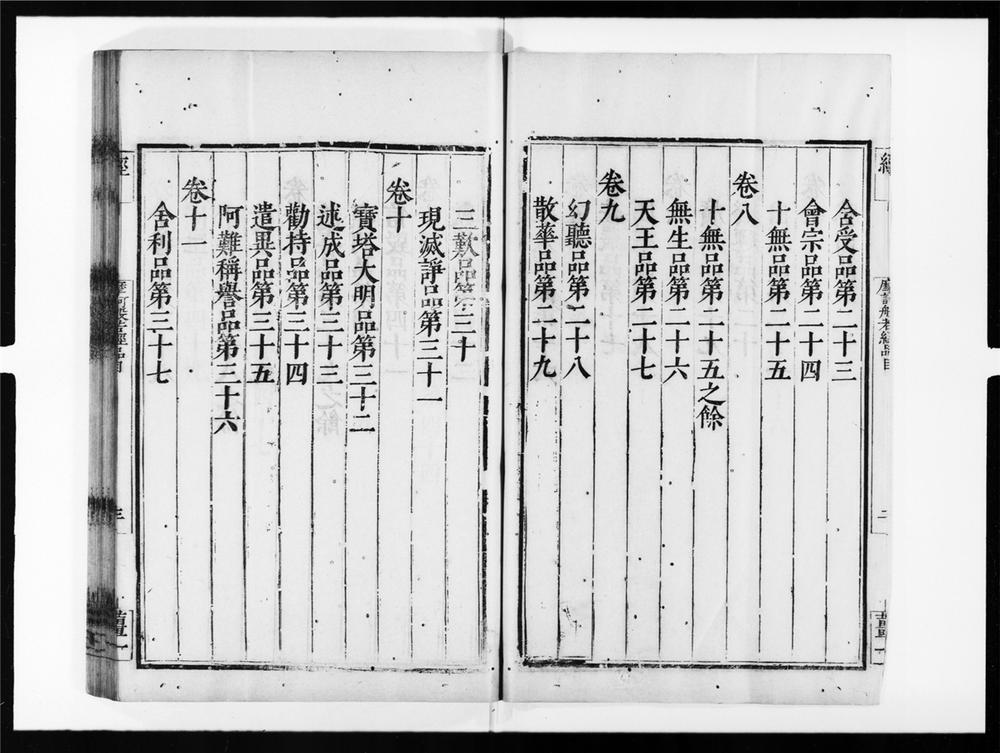 舍受品第二十三
會宗品第二十四
十無品第二十五
卷八
十無品第二十五之餘
無生品第二十六
天王品第二十七
卷九
幻聽品第二十八
散華品第二十九
三歎品第三十
現滅諍品第三十一
卷十
寶塔大明品第三十二
述成品第三十三
勸持品第三十四
遣異品第三十五
阿難稱譽品第三十六
卷十一
舍利品第三十七